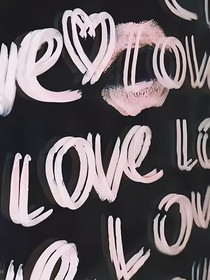 ve ♡ Love
Love Lo
Love
Lo